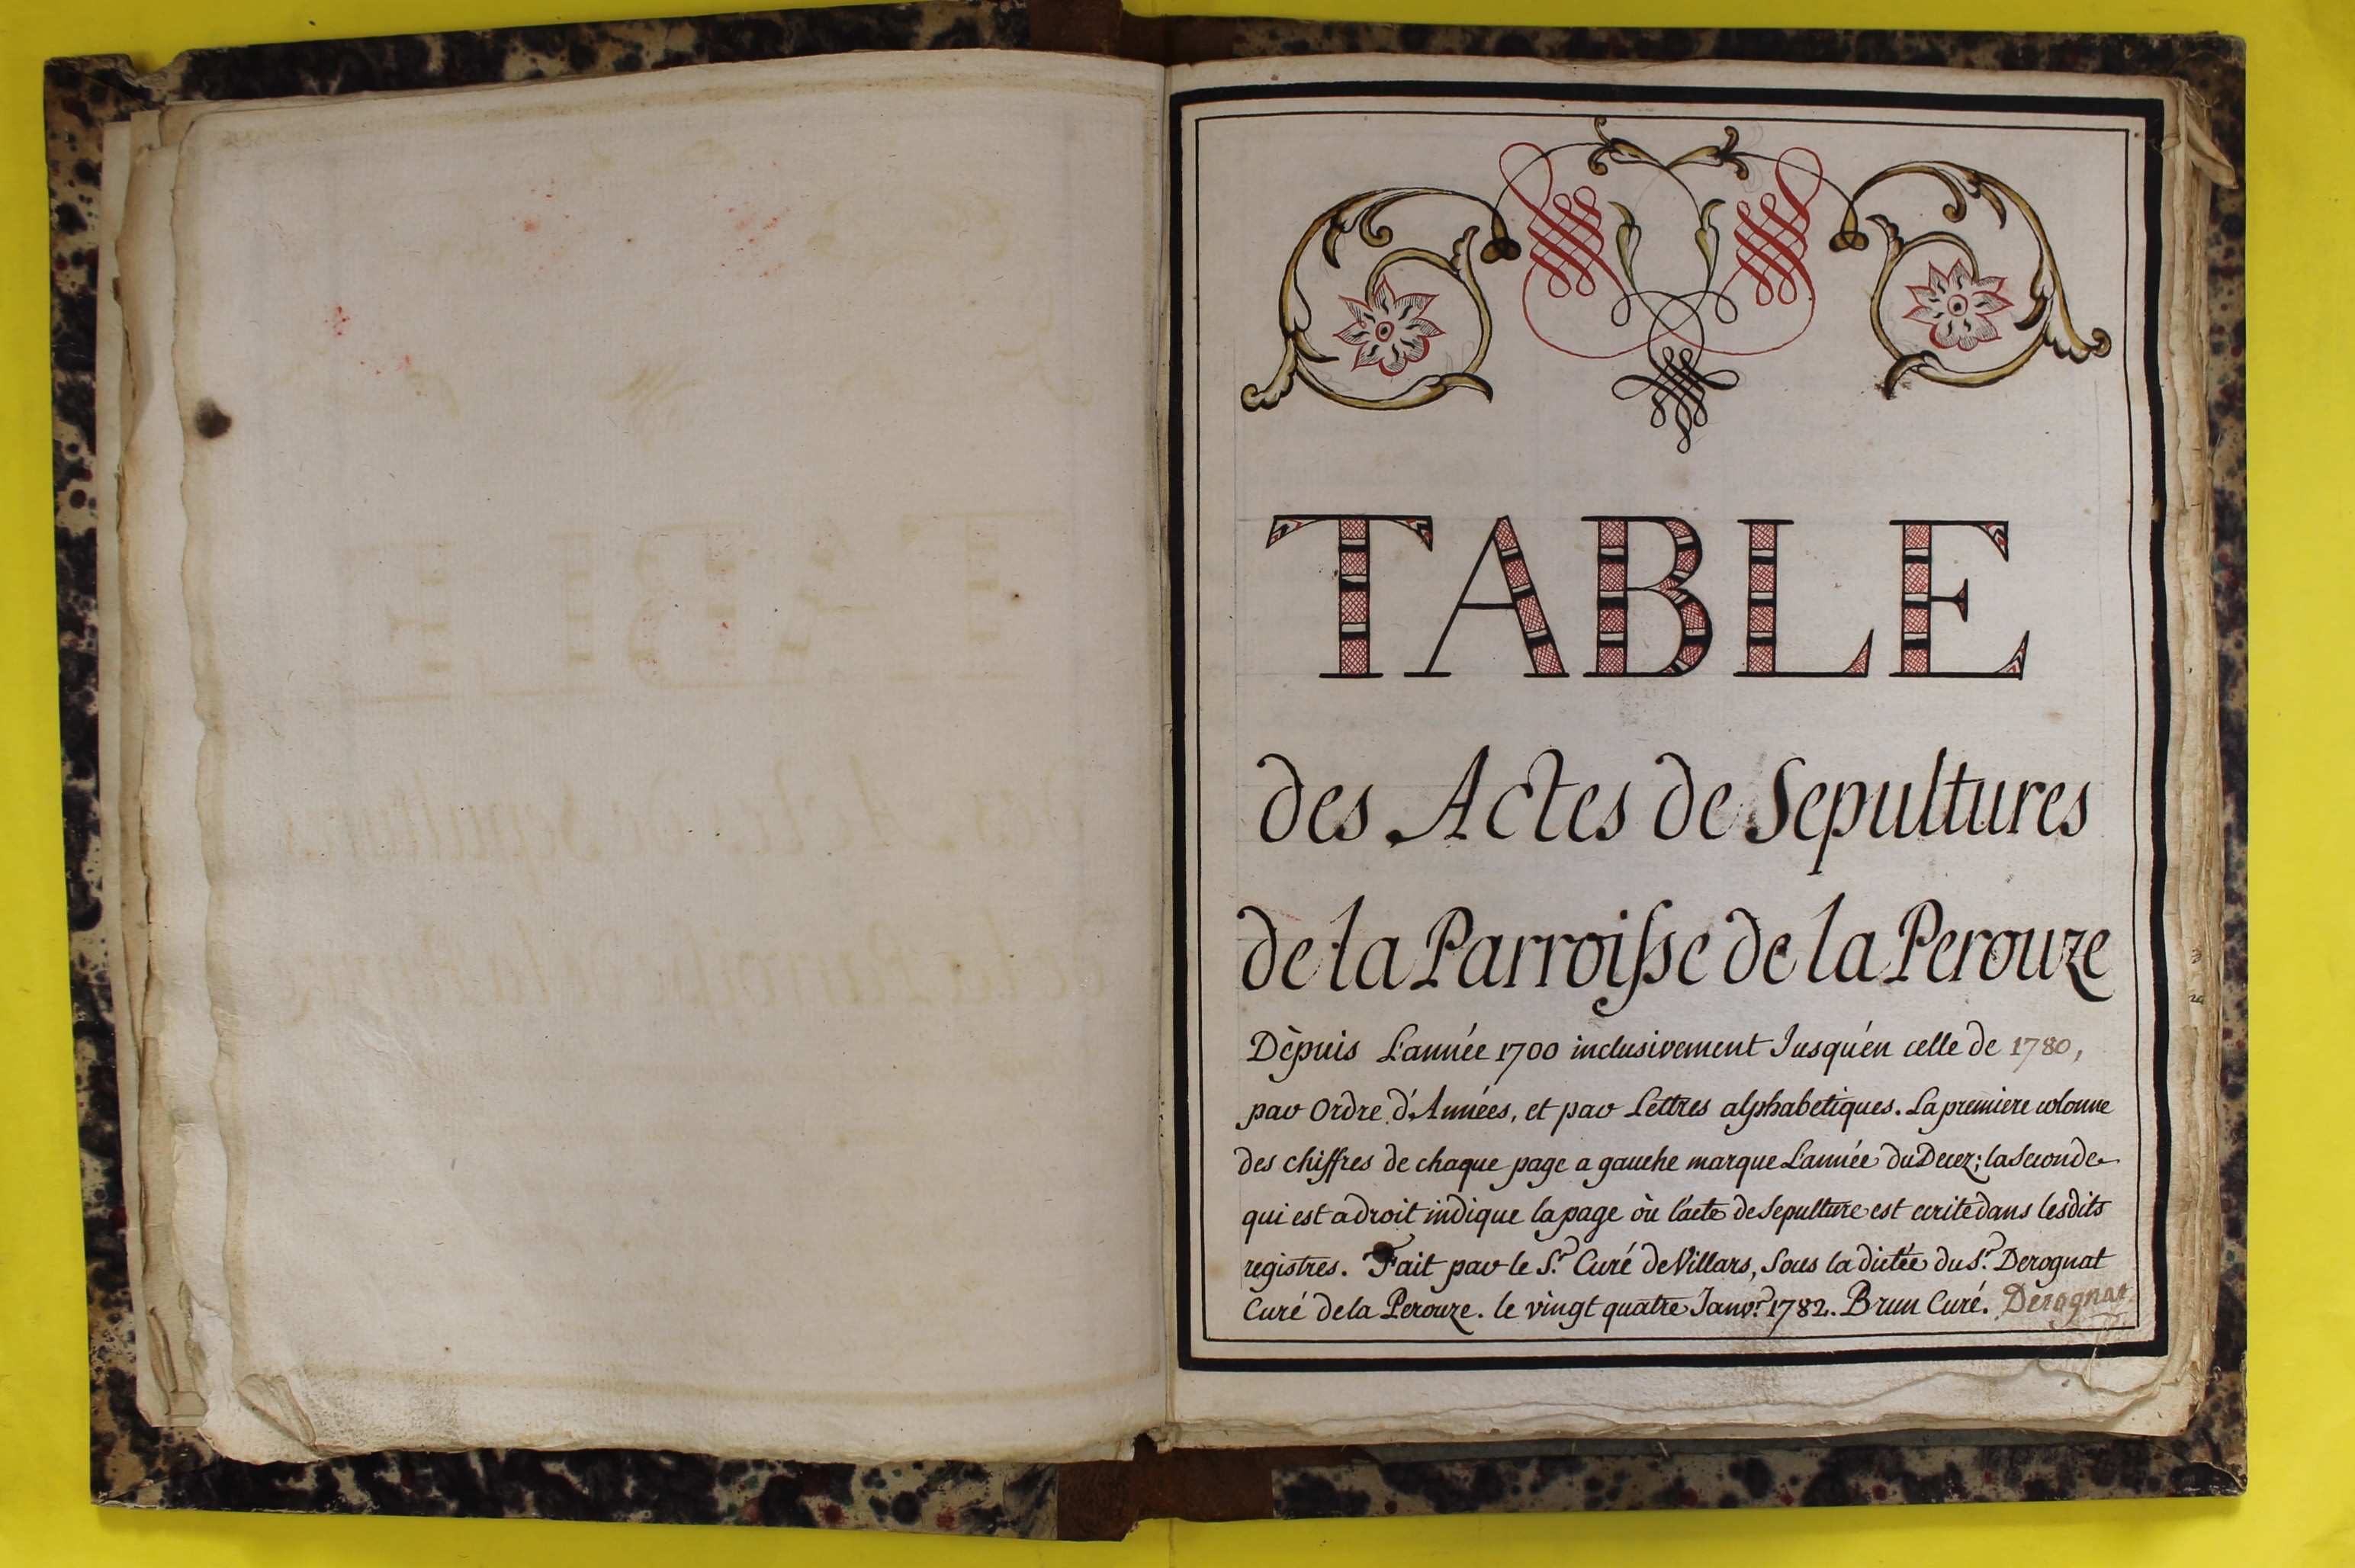 TABLE
des Actes de Sepultures
de la Parroisse de la Perouze
Dèpuis L'année 1700 inclusivement Jusqu'en celle de 1780,
par Ordre d'Années, et par Lettres alphabetiques. La premiere colonne
des chiffres de chaque page a gauche marque L'année du Decez; la Seconde
qui est a droit indique la page òu l'acte de Sepulture est ecrite dans lesdits
registres. Fait par le S.r Curé de Villars, Sous la dictée du S.r Derognat
Curé de la Perouze. le vingt quatre Janv.r 1782. Brun Curé. Derognat